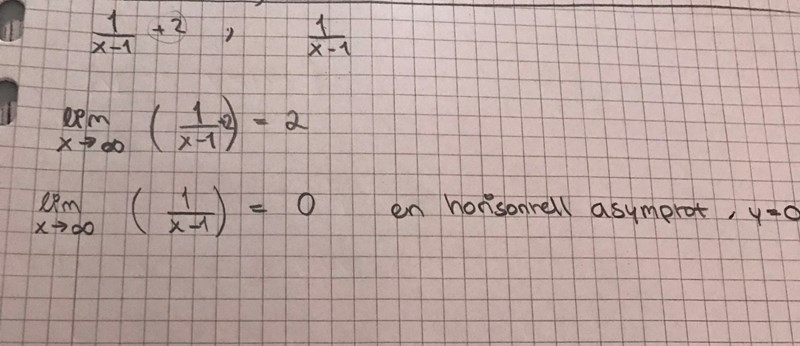 1/(x-1) + 2 , 1/(x-1)
lim x→∞ (1/(x-1) +2) = 2
lim x→∞ (1/(x-1)) = 0 en horisontell asymptot, y=0